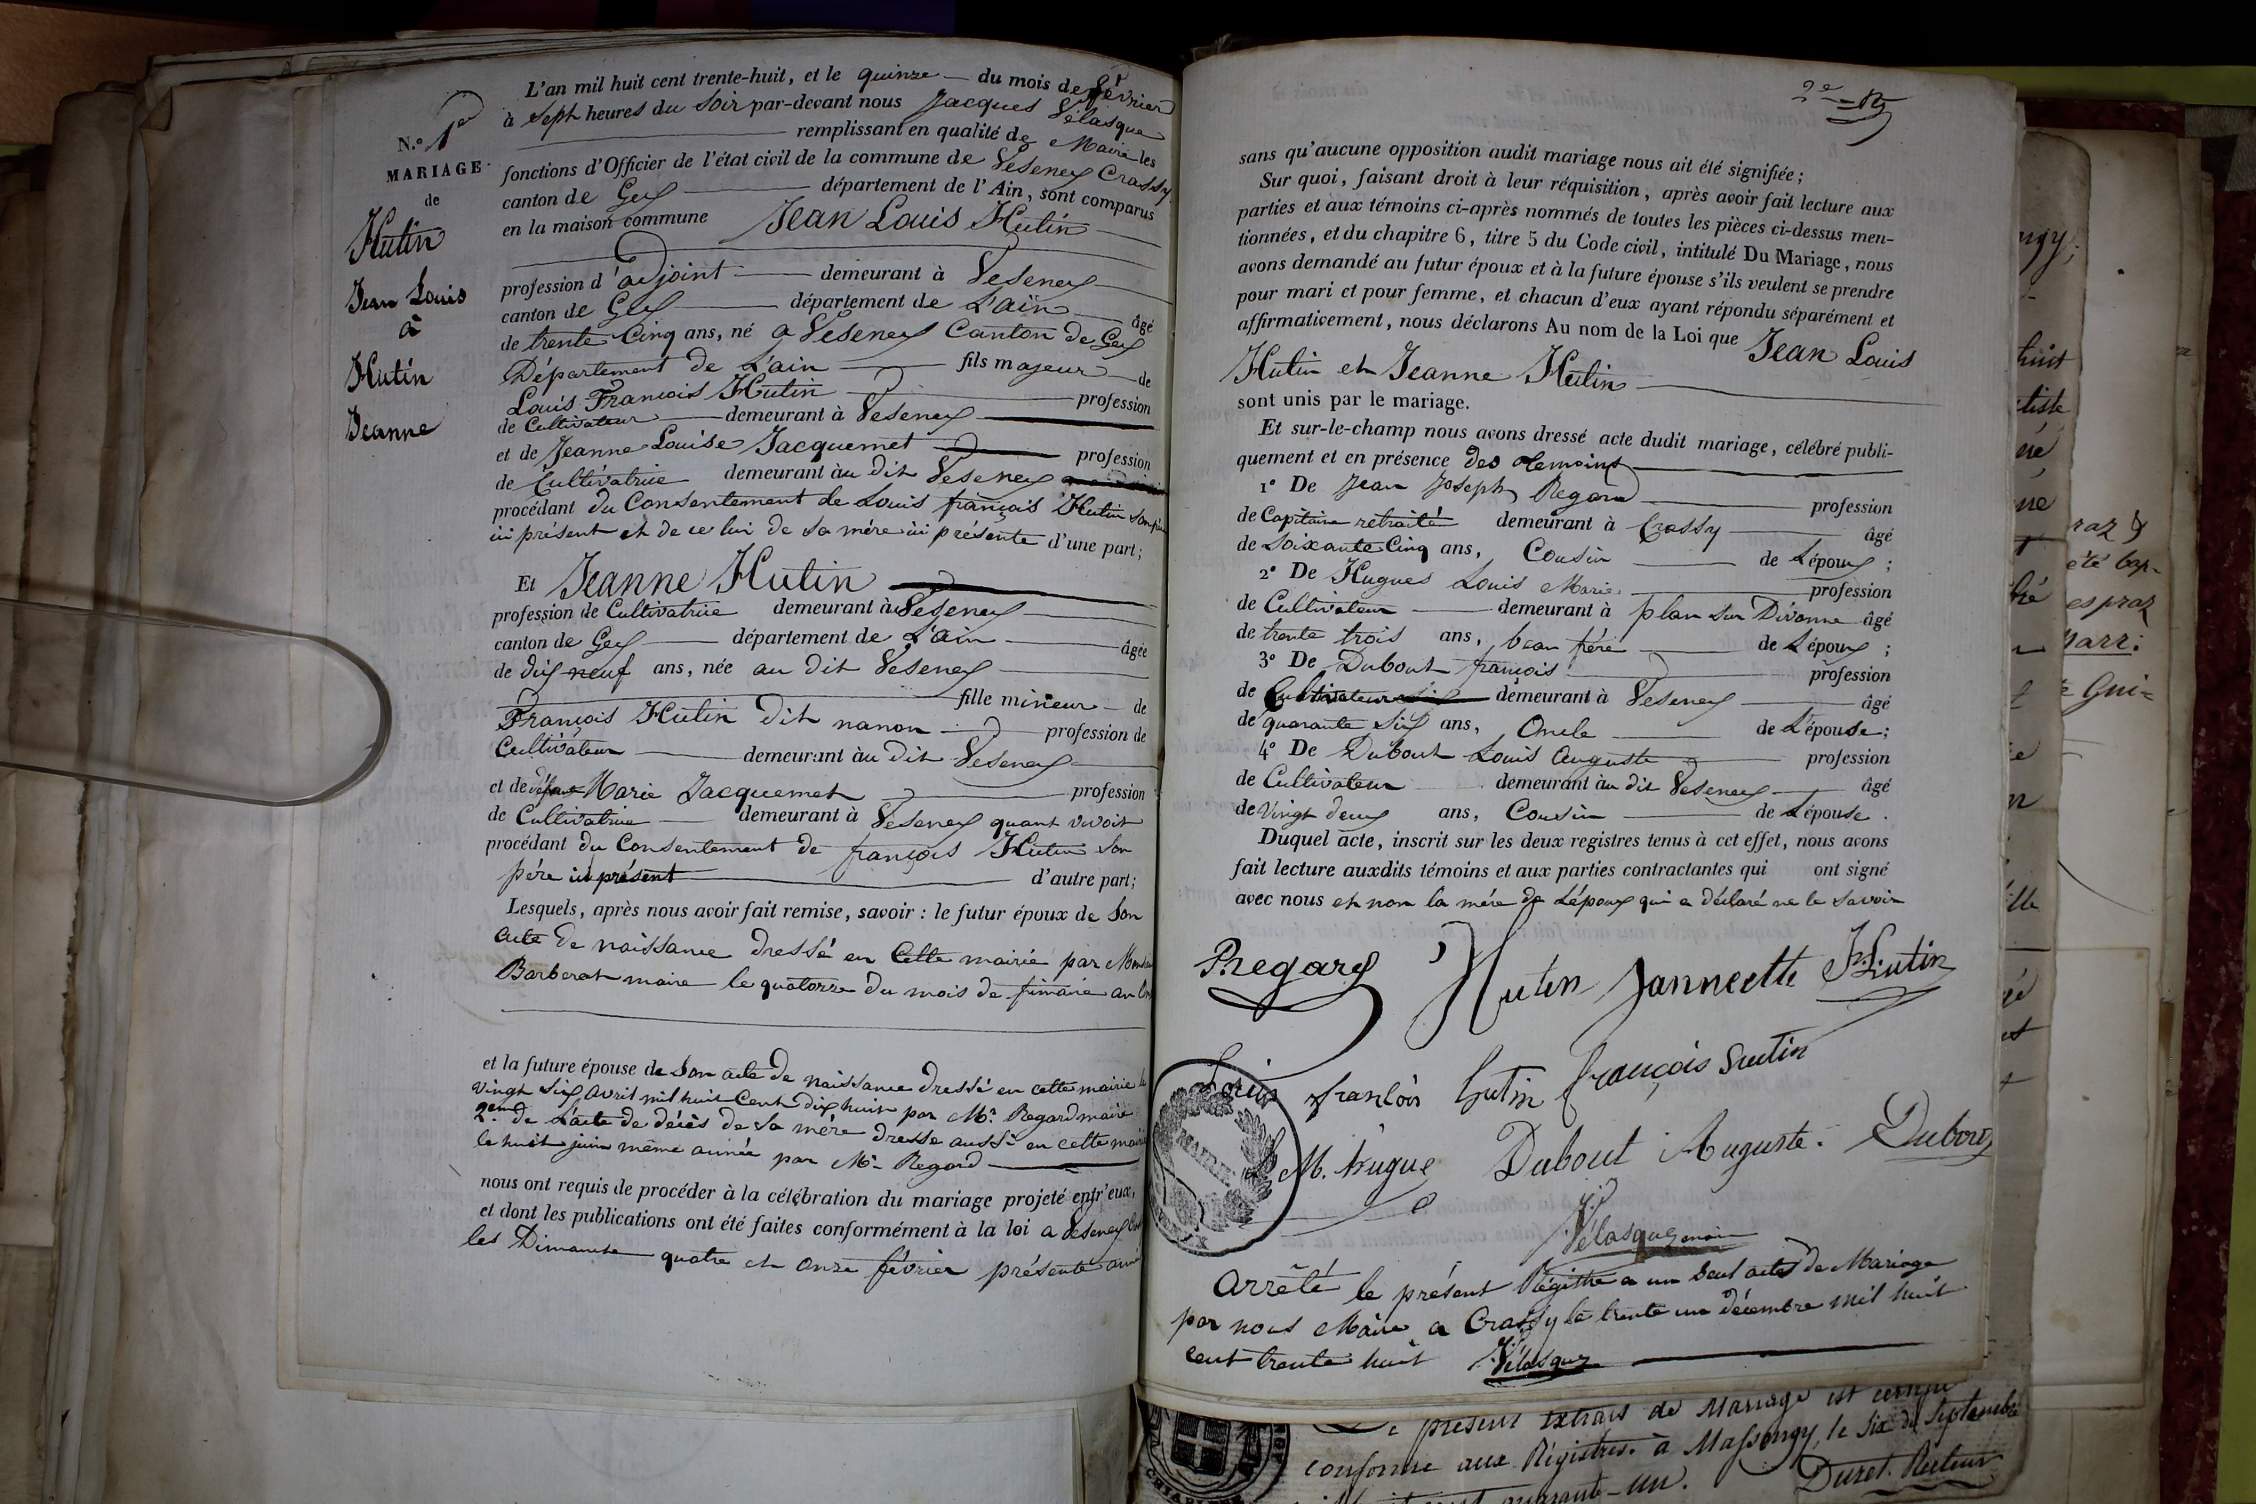 L'an mil huit cent trente-huit, et le quinze du mois de février
à Sept heures du Soir par-devant nous Jacques Vélasque
remplissant en qualité de Maire les
fonctions d'Officier de l'état civil de la commune de Vesenex Crassy
canton de Gex département de l'Ain, sont comparus
en la maison commune Jean Louis Hutin
profession d'adjoint demeurant à Vesenex
canton de Gex département de L'ain âgé
de trente Cinq ans, né a Vesenex Canton de Gex
Département de L'ain fils majeur de
Louis François Hutin profession
de Cultivateur demeurant à Vesenex
et de Jeanne Louise Jacquemet profession
de Cultivatrice demeurant àu dit Vesenex
procédant du Consentement de Louis françois Hutin son père
ici présent et de celui de sa mére ici présente d'une part;
Et Jeanne Hutin
profession de Cultivatrice demeurant àu Vesenex
canton de Gex département de L'ain âgée
de dix neuf ans, née au dit Vesenex
fille mineur de
François Hutin dit nanon profession de
Cultivateur demeurant àu dit Vesenex
et de défunte Marie Jacquemet profession
de Cultivatrice demeurant à Vesenex quant vivoit
procédant du Consentement de françois Hutin son
pére ici présent d'autre part;
Lesquels, après nous avoir fait remise, savoir : le futur époux de Son
acte de naissance dressé en Cette mairie par
Barberat maire le quatorze du mois de frimaire an
et la future épouse de Son acte de naissance dressé en cette mairie le
vingt Six avril mil huit Cent dix huit par Mr. Regard maire
2em. de L'acte de décès de sa mére dresse aussi en cette mairie
le huit juin même année par Mr. Regard
nous ont requis de procéder à la célébration du mariage projeté entr'eux,
et dont les publications ont été faites conformément à la loi a Vesenex
les Dimanche quatre et onze février présente année
N.° 1er
MARIAGE
de
Hutin
Jean Louis
à
Hutin
Jeanne
sans qu'aucune opposition audit mariage nous ait été signifiée;
Sur quoi, faisant droit à leur réquisition, après avoir fait lecture aux
parties et aux témoins ci-après nommés de toutes les pièces ci-dessus men-
tionnées, et du chapitre 6, titre 5 du Code civil, intitulé Du Mariage, nous
avons demandé au futur époux et à la future épouse s'ils veulent se prendre
pour mari et pour femme, et chacun d'eux ayant répondu séparément et
affirmativement, nous déclarons Au nom de la Loi que Jean Louis
Hutin et Jeanne Hutin
sont unis par le mariage.
Et sur-le-champ nous avons dressé acte dudit mariage, célébré publi-
quement et en présence des temoins
1° De Jean Joseph Regard profession
de Capitaine retraité demeurant à Crassy âgé
de Soixante Cinq ans, Cousin de Lépoux ;
2° De Hugues Louis Marie profession
de Cultivateur demeurant à plan sur Divonne âgé
de trente trois ans, beau frére de Lépoux ;
3° De Dubout françois profession
de Cultivateur demeurant à Vesenex âgé
de quarante Six ans, Oncle de L'épouse;
4° De Dubout Louis Auguste profession
de Cultivateur demeurant àu dit Vesenex âgé
de Vingt deux ans, Cousin de Lépouse.
Duquel acte, inscrit sur les deux registres tenus à cet effet, nous avons
fait lecture auxdits témoins et aux parties contractantes qui ont signé
avec nous et non la mére de Lépoux qui a déclaré ne le savoir
Regard Hutin Janneette Hutin
Louis franlois hutin françois hutin
L M. hugue Dubout Auguste. Dubout
MAIRIE
Vélasque maire
Arrêté le présent Régistre a un Seul acte de Mariage
par nous Maire a Crassy le trente un décembre mil huit
cent trente huit Vélasque
présent extrait de Mariage est
conforme aux Régistres. à Massongy, le Six de Septembre
quarante-un. Duret. Recteur